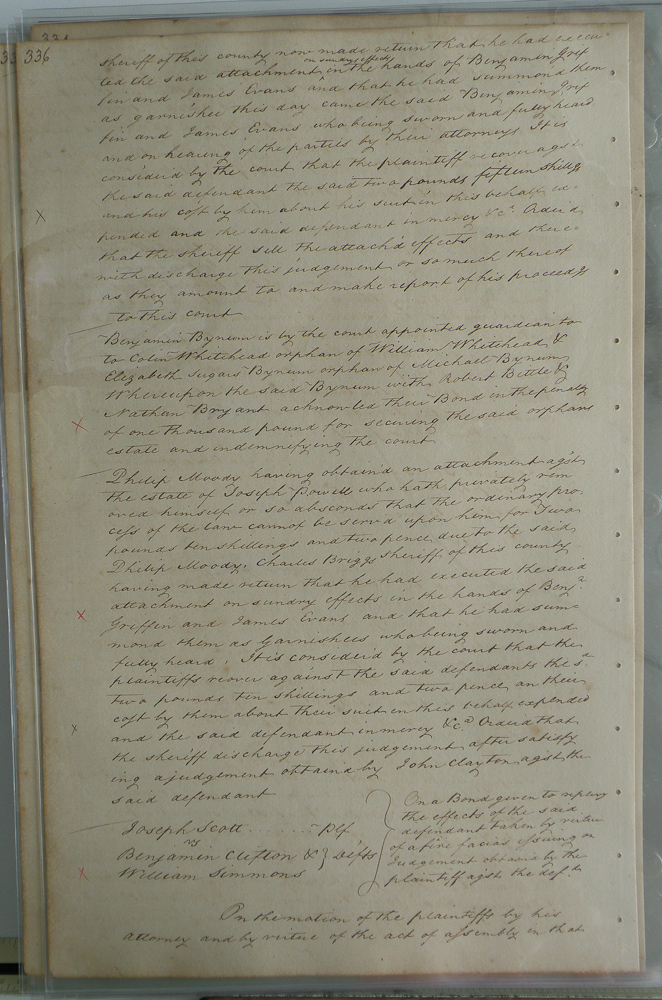 336
sheriff of this county now made return that he had execu-
ted the said attachment on sundry effects in the hands of Benjamin Grif
fin and James Evans and that he had summond them
as garnishee this day came the said Benjamin Grif
fin and James Evans who being sworn and fully heard
and on hearing of the parties by their attorneys It is
considerd by the court that the plaintiff recover agst
the said defendant the said two pounds fifteen shillings
and his cost by him about his suit in this behalf ex-
pended and the said defendant in mercy &c. Orderd
that the sheriff sell the attachd effects and there-
with discharge this judgement or so much thereof
as they amount to and make report of his proceedgs
to this court
Benjamin Bynum is by the court appointed guardian to
to Colin Whitehead orphan of William Whitehead &
Elizabeth Sugars Bynum orphan of Michael Bynum
Whereupon the said Bynum with Robert Bittle &
Nathan Bryant acknowled their Bond in the penalty
of one thousand pound for securing the said orphans
estate and indemnifying the court
Philip Moody having obtaind an attachment agst
the estate of Joseph Powell who hath privately rem
oved himself or so absconds that the ordinary pro
cess of the law cannot be servd upon him for Two
pounds ten shillings and two pence due to the said
Philip Moody. Charles Briggs sheriff of this county
having made return that he had executed the said
attachment on sundry effects in the hands of Benj.
Griffin and James Evans and that he had sum
mond them as Garnishees who being sworn and
fully heard. It is considerd by the court that the
plaintiffs recover against the said defendants the sd
two pounds ten shillings and two pence an their
cost by them about their suit in this behalf expended
and the said defendant in mercy &c. Orderd that
the sheriff discharge this judgement after satisfy
ing a judgement obtaind by John Clayton agst the
said defendant
Joseph Scott Plf
vs
Benjamin Clifton & } Defts
William Simmons
On a Bond given to replevy
the effects of the said
defendant taken by virtue
of a fire facias issuing on
Judgement obtain by the
plaintiff agst the defts
On the motion of the plaintiffs by his
attorney and by virtue of the act of assembly in that